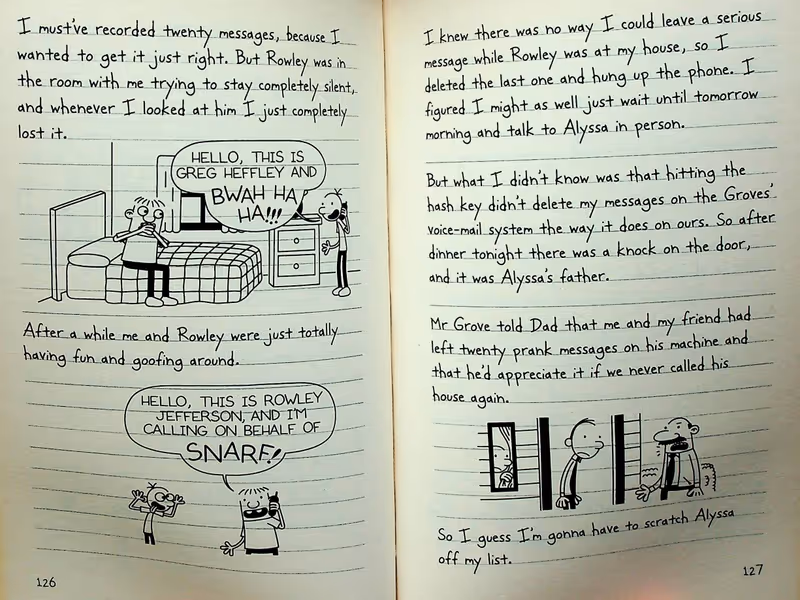 I must've recorded twenty messages, because I
wanted to get it just right. But Rowley was in
the room with me trying to stay completely silent,
and whenever I looked at him I just completely
lost it.
HELLO, THIS IS
GREG HEFFLEY AND
BWAH HA
HA!!!
After a while me and Rowley were just totally
having fun and goofing around.
HELLO, THIS IS ROWLEY
JEFFERSON, AND I'M
CALLING ON BEHALF OF
SNARF!
126
I knew there was no way I could leave a serious
message while Rowley was at my house, so I
deleted the last one and hung up the phone. I
figured I might as well just wait until tomorrow
morning and talk to Alyssa in person.
But what I didn't know was that hitting the
hash key didn't delete my messages on the Groves'
voice-mail system the way it does on ours. So after
dinner tonight there was a knock on the door,
and it was Alyssa's father.
Mr Grove told Dad that me and my friend had
left twenty prank messages on his machine and
that he'd appreciate it if we never called his
house again.
So I guess I'm gonna have to scratch Alyssa
off my list.
127